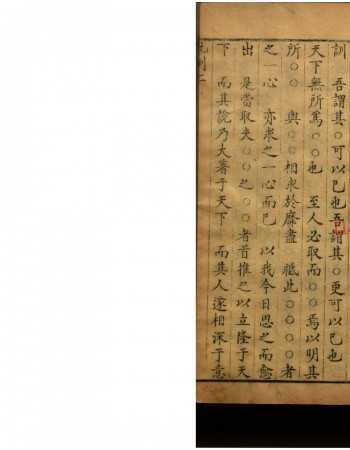 訓　吾謂其○可以已也吾謂其○更可以已也
天下無所為○○也　至人必取而○○焉以明其
所○○　與○○相求於靡盡　祗此○○○○者
之一心　亦求之一心而已　以我今日思之而愈
出　是當取夫○○之○○者首推之以立隆于天
下　而其說乃大著于天下　而其人遂相深于意